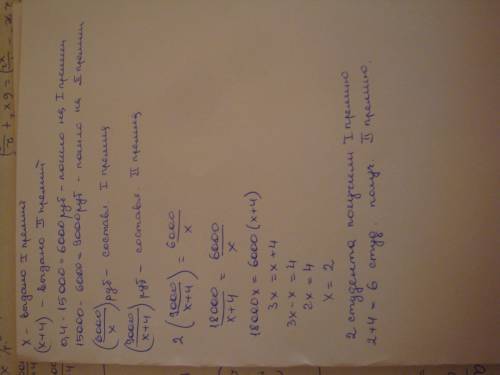 x - выдано I премий
(x+4) - выдано II премий
0,4 · 15000 = 6000 руб - пошло на I премии
15000 - 6000 = 9000 руб - пошло на II премии
(6000/x) руб - составл. I премия
(9000/x+4) руб - составл. II премия
2 (9000/x+4) = 6000/x
18000/x+4 = 6000/x
18000x = 6000 (x+4)
3x = x + 4
3x - x = 4
2x = 4
x = 2
2 студента получили I премию
2+4 = 6 студ. получ. II премию.